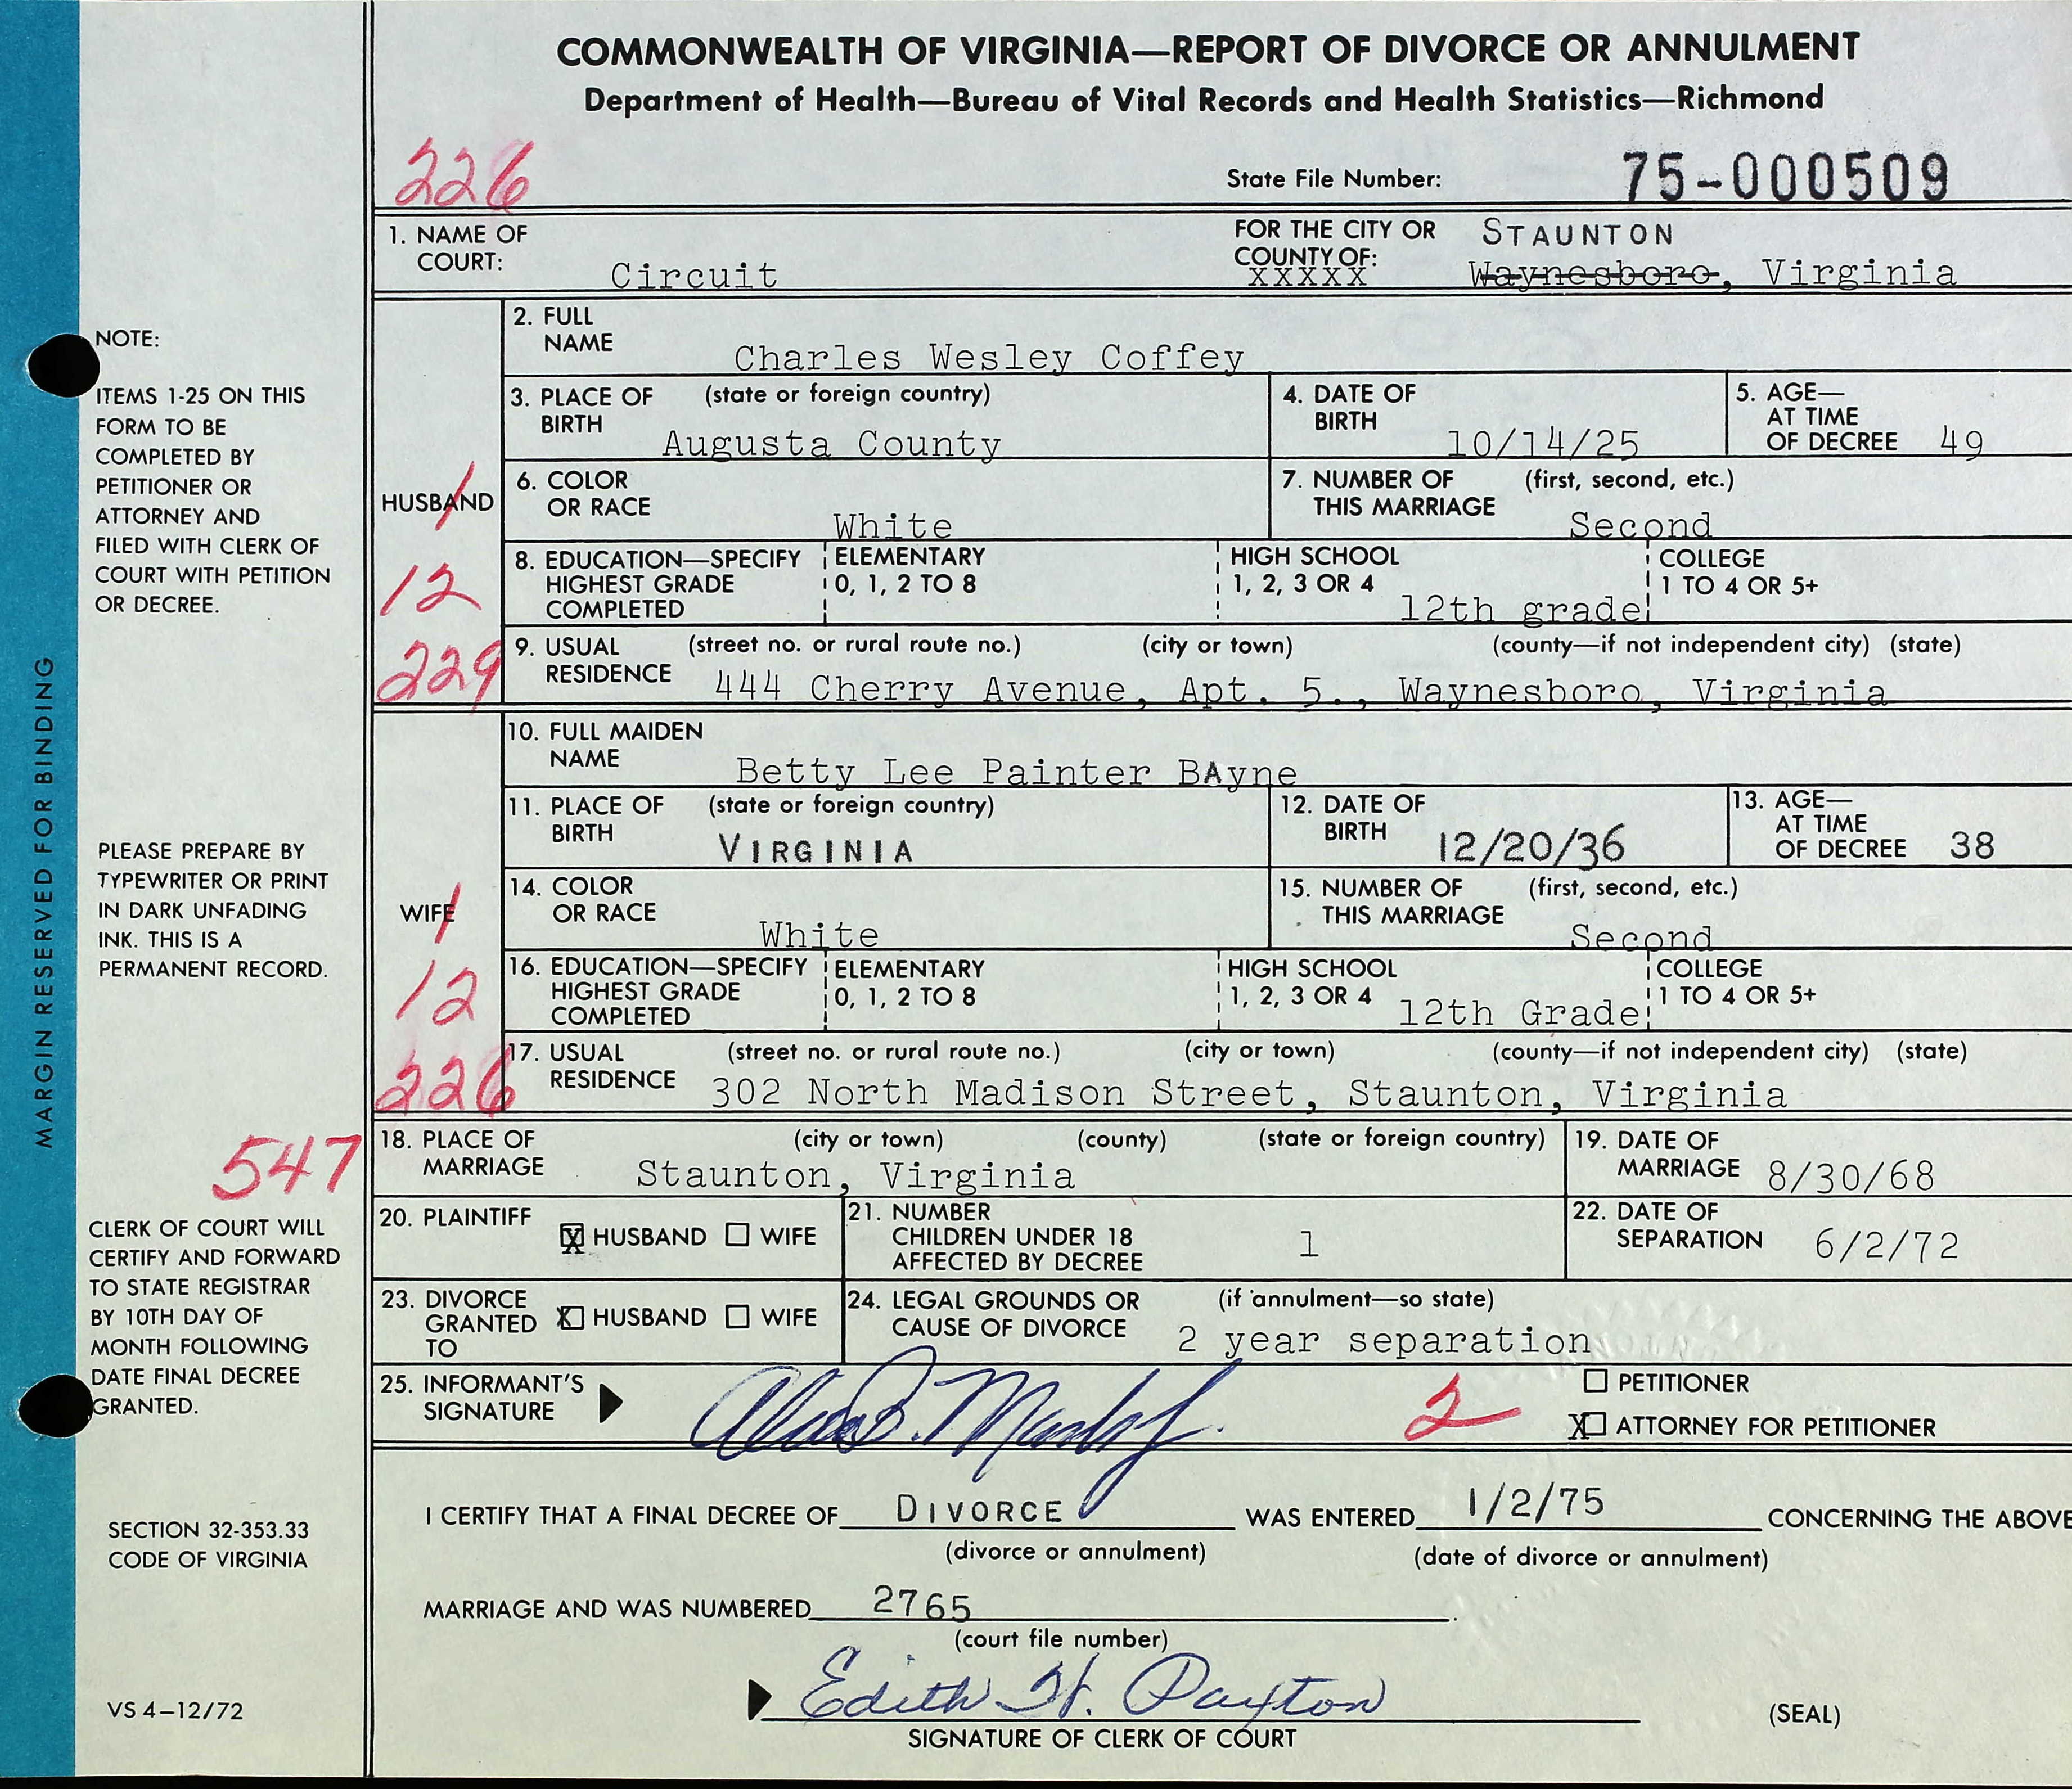 COMMONWEALTH OF VIRGINIA—REPORT OF DIVORCE OR ANNULMENT
Department of Health—Bureau of Vital Records and Health Statistics—Richmond
226
State File Number: 75-000509
1. NAME OF COURT: Circuit FOR THE CITY OR COUNTY OF: XXXXX STAUNTON Waynesboro, Virginia
MARGIN RESERVED FOR BINDING
NOTE:
ITEMS 1-25 ON THIS
FORM TO BE
COMPLETED BY
PETITIONER OR
ATTORNEY AND
FILED WITH CLERK OF
COURT WITH PETITION
OR DECREE.
PLEASE PREPARE BY
TYPEWRITER OR PRINT
IN DARK UNFADING
INK. THIS IS A
PERMANENT RECORD.
547
CLERK OF COURT WILL
CERTIFY AND FORWARD
TO STATE REGISTRAR
BY 10TH DAY OF
MONTH FOLLOWING
DATE FINAL DECREE
GRANTED.
SECTION 32-353.33
CODE OF VIRGINIA
VS 4—12/72
HUSBAND
1
12
229
2. FULL NAME Charles Wesley Coffey
3. PLACE OF BIRTH (state or foreign country) Augusta County
4. DATE OF BIRTH 10/14/25
5. AGE—AT TIME OF DECREE 49
6. COLOR OR RACE White
7. NUMBER OF THIS MARRIAGE (first, second, etc.) Second
8. EDUCATION—SPECIFY HIGHEST GRADE COMPLETED ELEMENTARY 0, 1, 2 TO 8 HIGH SCHOOL 1, 2, 3 OR 4 12th grade COLLEGE 1 TO 4 OR 5+
9. USUAL RESIDENCE (street no. or rural route no.) (city or town) (county—if not independent city) (state)
444 Cherry Avenue, Apt. 5., Waynesboro, Virginia
WIFE
1
12
226
10. FULL MAIDEN NAME Betty Lee Painter BAyne
11. PLACE OF BIRTH (state or foreign country) VIRGINIA
12. DATE OF BIRTH 12/20/36
13. AGE—AT TIME OF DECREE 38
14. COLOR OR RACE White
15. NUMBER OF THIS MARRIAGE (first, second, etc.) Second
16. EDUCATION—SPECIFY HIGHEST GRADE COMPLETED ELEMENTARY 0, 1, 2 TO 8 HIGH SCHOOL 1, 2, 3 OR 4 12th Grade COLLEGE 1 TO 4 OR 5+
17. USUAL RESIDENCE (street no. or rural route no.) (city or town) (county—if not independent city) (state)
302 North Madison Street, Staunton, Virginia
18. PLACE OF MARRIAGE (city or town) (county) (state or foreign country) Staunton, Virginia
19. DATE OF MARRIAGE 8/30/68
20. PLAINTIFF X HUSBAND WIFE
21. NUMBER CHILDREN UNDER 18 AFFECTED BY DECREE 1
22. DATE OF SEPARATION 6/2/72
23. DIVORCE GRANTED TO X HUSBAND WIFE
24. LEGAL GROUNDS OR CAUSE OF DIVORCE (if annulment—so state) 2 year separation
25. INFORMANT'S SIGNATURE
2
PETITIONER
X ATTORNEY FOR PETITIONER
I CERTIFY THAT A FINAL DECREE OF DIVORCE WAS ENTERED 1/2/75 CONCERNING THE ABOVE
(divorce or annulment) (date of divorce or annulment)
MARRIAGE AND WAS NUMBERED 2765.
(court file number)
Edith H. Paxton
SIGNATURE OF CLERK OF COURT
(SEAL)